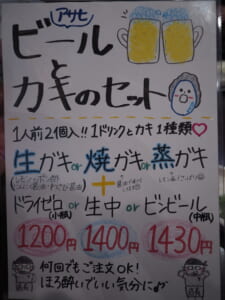 アサヒ
ビール
と
カキのセット
1人前2個入!!1ドリンクとカキ1種類♡
生ガキor焼ガキor蒸ガキ
+
ドライゼロ(小瓶)or生中orビンビール(中瓶)
1200円 1400円 1430円
何回でもご注文OK!
ほろ酔いでいい気分に♪